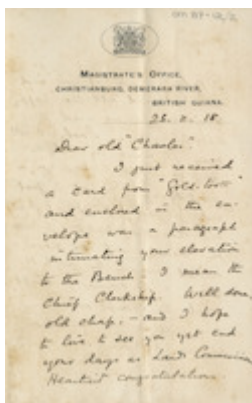 MAGISTRATE'S OFFICE,
CHRISTIANBURG, DEMERARA RIVER,
BRITISH GUIANA.
Dear old "Charlie".
I just received
a card from "Gold-
and enclosed in the en-
velope was a paragraph
intimating your elevation
to the Bench - I mean the
Chief Clerkship. Well done,
old chap, - and I hope
to live to see you yet end
your days as Lands
Heartiest congratulations